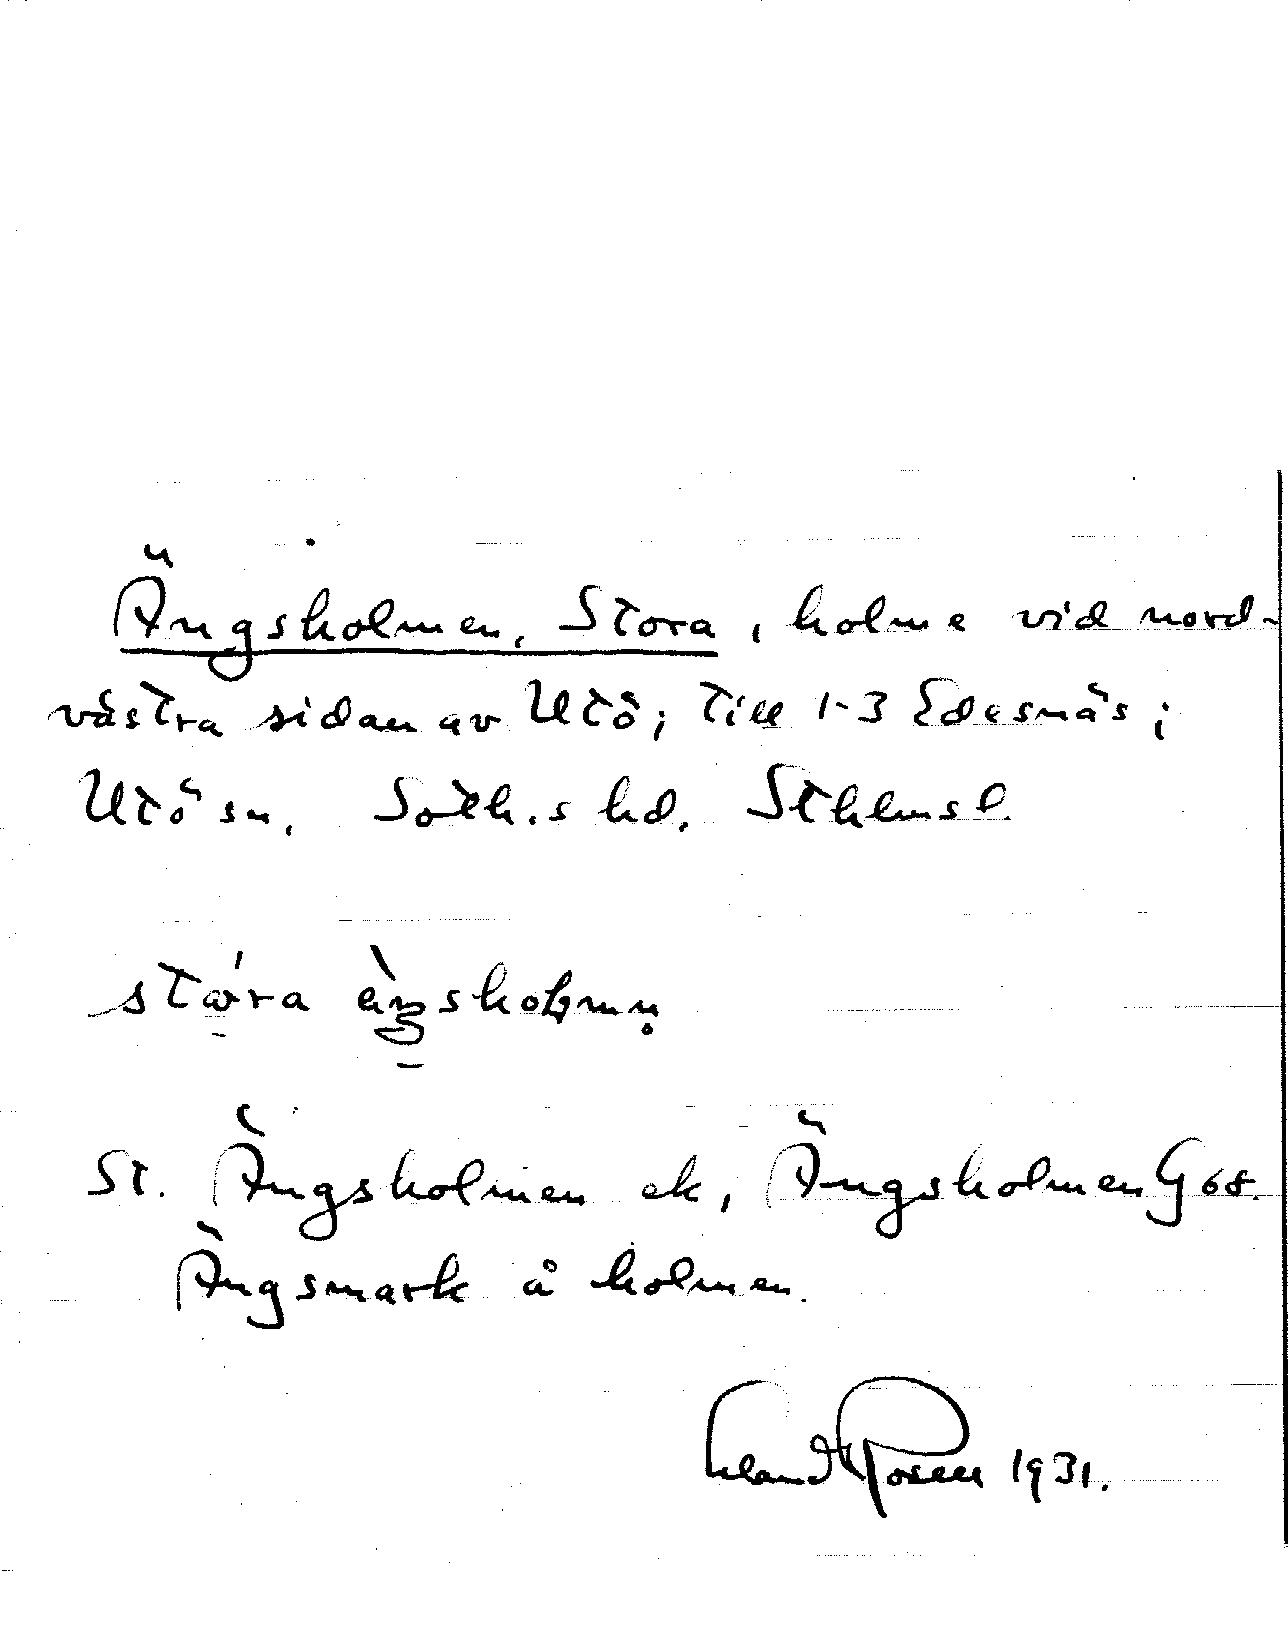 Ängsholmen, Stora, holme vid nord-
västra sidan av Utö; till 1-3 Edesnäs;
Utö sn, Soth.s hd, Sthlmsl.
stóra àŋsholmn̥
St. Ängsholmen ek, Ängsholmen G 68.
Ängsmark å holmen.
Erland Rosell 1931.